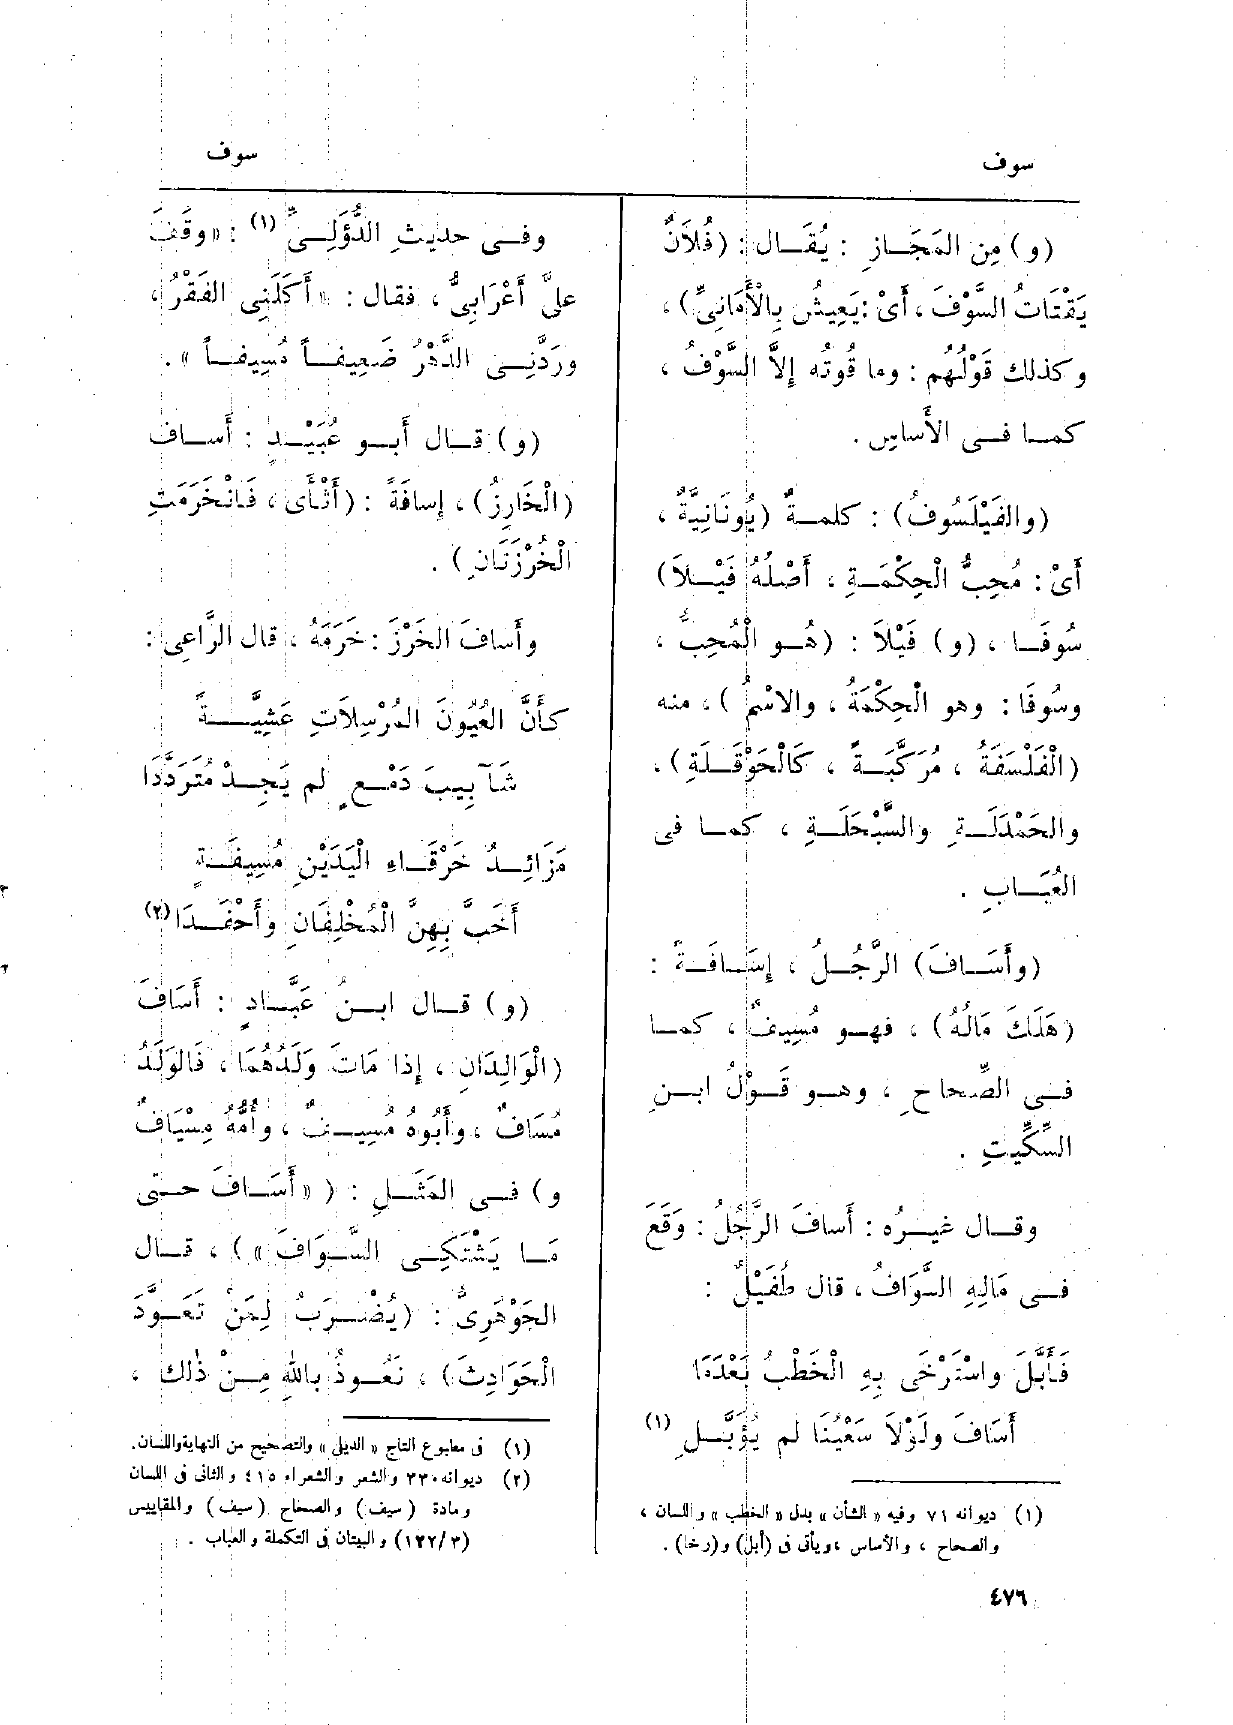 سوف
سوف
(و) مِن المَجَازِ : يُقَال : (فُلاَنٌ
يَقْتَاتُ السَّوْفَ ، أَىْ : يَعِيشُ بِالْأَمَانِىِّ) ،
وكذلك قَوْلُهُم : وما قُوتُه إِلاَّ السَّوْفُ ،
كما فى الأَساسِ .
(والفَيْلَسُوفُ) : كلمةٌ (يُونَانِيَّةٌ ،
أَىْ : مُحِبُّ الْحِكْمَةِ ، أَصْلُهُ فَيْلاَ)
سُوفَا ، (و) فَيْلاَ : (هُو الْمُحِبُّ ،
وسُوفَا : وهو الْحِكْمَةُ ، والاسْمُ) ، منه
(الْفَلْسَفَةُ ، مُرَكَّبَةٌ ، كَالْحَوْقَلَةِ) .
والحَمْدَلَةِ والسَّبْحَلَةِ ، كما فى
العُبَابِ .
(وأَسَافَ) الرَّجُلُ ، إِسَافَةً :
(هَلَكَ مَالُهُ) ، فهو مُسِيفٌ ، كما
فى الصِّحاحِ ، وهو قَوْلُ ابنِ
السِّكِّيتِ .
وقال غيرُه : أَسافَ الرَّجُلُ : وَقَعَ
فى مَالِهِ السَّوَافُ ، قال طُفَيْلٌ :
فَأَبَّلَ واسْتَرْخَى بِهِ الْخَطْبُ بَعْدَمَا
أَسَافَ ولَوْلاَ سَعْيُنَا لم يُؤَبَّلِ (١)
(١) ديوانه ٧١ وفيه «الشأن» بدل «الخطب» واللسان ،
والصحاح ، والأساس ، ويأتى فى (أبل) و(رخا) .
وفى حديثِ الدُّؤَلِىِّ (١) : «وقَفَ
علىَّ أَعْرَابِىٌّ ، فقال : «أَكَلَنِى الفَقْرُ ،
ورَدَّنِى الدَّهْرُ ضَعِيفاً مُسِيفاً» .
(و) قال أَبو عُبَيْدٍ : أَساف
(الْخَارِزُ) ، إِسافَةً : (أَثْأَى ، فَانْخَرَمَتِ
الْخُرْزَتَانِ) .
وأَسافَ الخَرْزَ : خَرَمَهُ ، قال الرَّاعِى :
كأَنَّ العُيُونَ المُرْسِلاَتِ عَشِيَّةً
شَآبِيبَ دَمْعٍ لم يَجِدْ مُتَرَدَّدَا
مَزَائِدُ خَرْقَاءِ الْيَدَيْنِ مُسِيفَةٍ
أَخَبَّ بِهِنَّ الْمُخْلِفَانِ وأَحْفَدَا (٢)
(و) قال ابنُ عَبَّادٍ : أَسَافَ
(الْوَالِدَانِ ، إِذا مَاتَ وَلَدُهُمَا ، فَالوَلَدُ
مُسَافٌ ، وأَبُوهُ مُسِيفٌ ، وأُمُّهُ مِسْيَافٌ
و) فى المَثَلِ : (« أَسَافَ حتى
مَا يَشْتَكِى السَّوَافَ») ، قال
الجَوْهَرِىُّ : (يُضْرَبُ لِمَنْ تَعَوَّدَ
الْحَوَادِثَ) ، نَعُوذُ بِاللهِ مِنْ ذٰلك ،
(١) فى مطبوع التاج «الديلى» والتصحيح من النهاية واللسان.
(٢) ديوانه ٢٣٠ والشعر والشعراء ٤١٥ والثانى فى اللسان
ومادة (سيف) والصحاح (سيف) والمقاييس
(١٢٢/٣) والبيتان فى التكملة والعباب .
٤٧٦